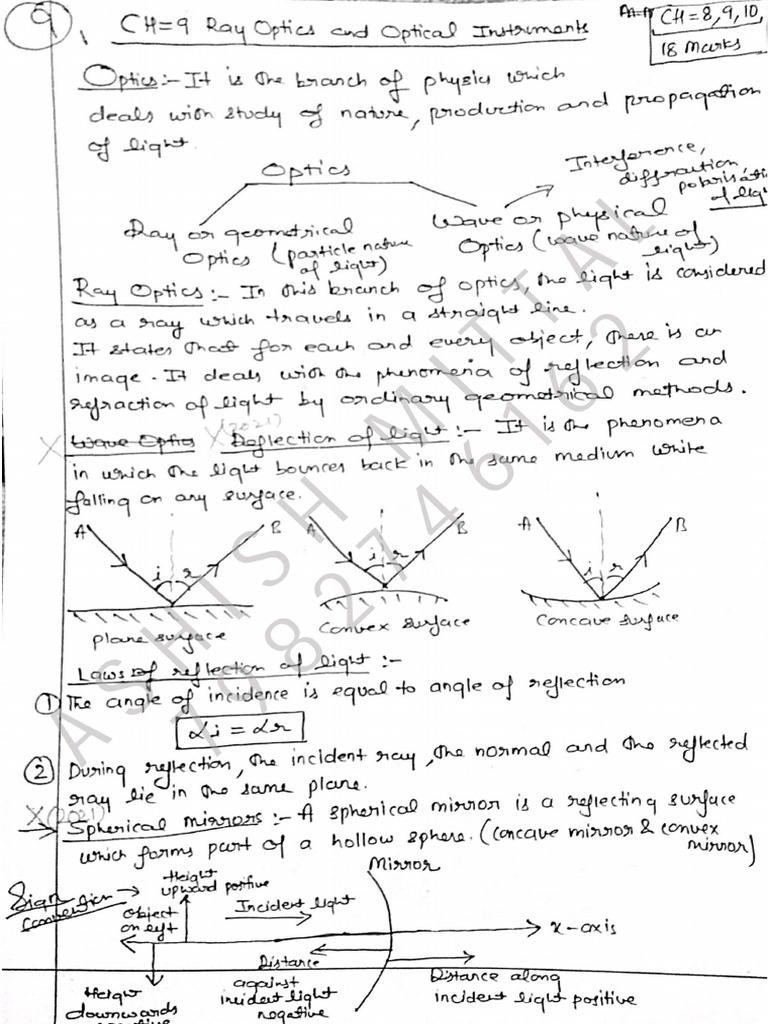 9
CH=9 Ray Optics and Optical Instruments
CH=8,9,10,
18 Marks
Optics:- It is the branch of physics which
deals with study of nature, production and propagation
of light.
Optics
Interference,
diffraction,
of light
Ray or geometrical
Optics (particle nature
of light)
Wave or physical
Optics (wave nature of
light)
Ray Optics:- In this branch of optics, the light is considered
as a ray which travels in a straight line.
It states that for each and every object, there is an
image. It deals with the phenomena of reflection and
refraction of light by ordinary geometrical methods.
X Wave Optics X(2021) Reflection of light:- It is the phenomena
in which the light bounces back in the same medium while
falling on any surface.
A B i r
A B i r
A B i r
plane surface
Convex surface
Concave surface
Laws of reflection of light:-
① The angle of incidence is equal to angle of reflection
∠i = ∠r
② During reflection, the incident ray, the normal and the reflected
ray lie in the same plane.
X(2021)
Spherical mirrors:- A spherical mirror is a reflecting surface
which forms part of a hollow sphere. (concave mirror & convex
mirror)
Mirror
Sign
convention
Height
upward positive
Object
on left
Incident light
x-axis
Distance
against
incident light
negative
Distance along
incident light positive
Height
downwards
ASHISH MITTAL
7982746162